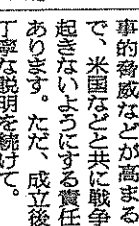 事的脅威などが高まる
で、米国などと共に戦争
起きないようにする責任
あります。ただ、成立後
丁寧な説明を続けて。